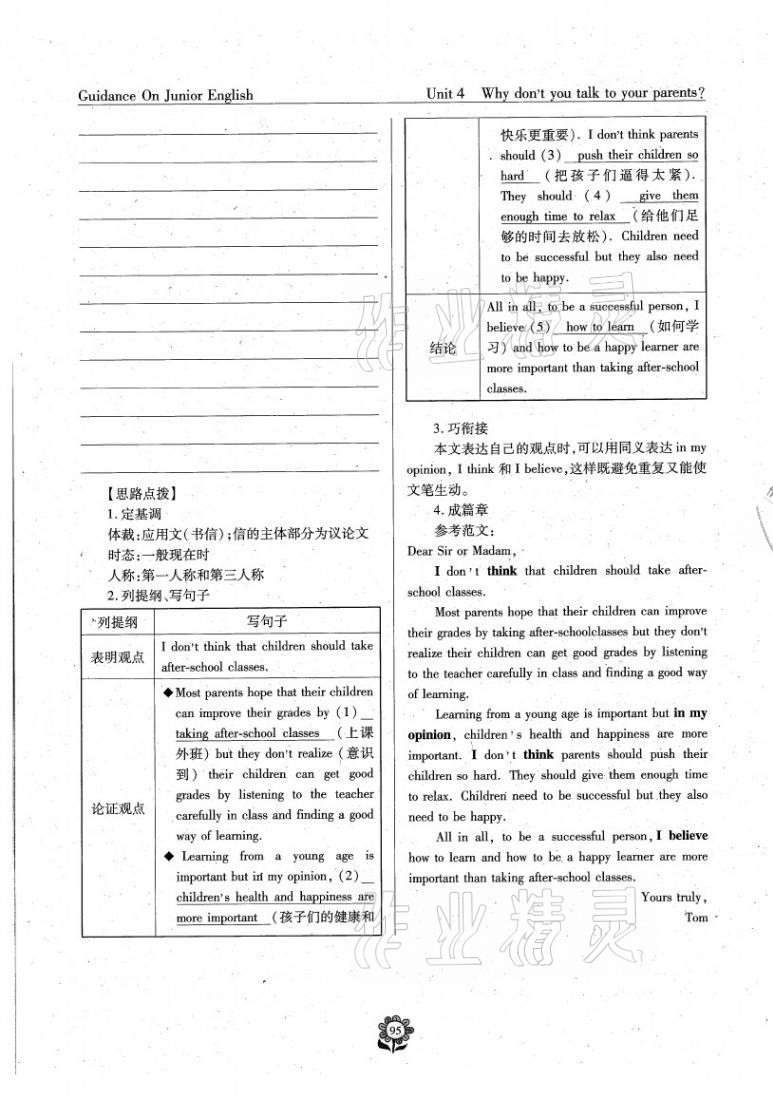 Guidance On Junior English
Unit 4 Why don't you talk to your parents?
【思路点拨】
1. 定基调
体裁:应用文(书信);信的主体部分为议论文
时态:一般现在时
人称:第一人称和第三人称
2. 列提纲、写句子
列提纲
写句子
表明观点
I don't think that children should take
after-school classes.
论证观点
◆Most parents hope that their children
can improve their grades by (1)
taking after-school classes (上课
外班) but they don't realize (意识
到) their children can get good
grades by listening to the teacher
carefully in class and finding a good
way of learning.
◆ Learning from a young age is
important but in my opinion, (2)
children's health and happiness are
more important (孩子们的健康和
快乐更重要). I don't think parents
should (3) push their children so
hard (把孩子们逼得太紧).
They should (4) give them
enough time to relax (给他们足
够的时间去放松). Children need
to be successful but they also need
to be happy.
结论
All in all, to be a successful person, I
believe (5) how to learn (如何学
习) and how to be a happy learner are
more important than taking after-school
classes.
3. 巧衔接
本文表达自己的观点时,可以用同义表达 in my
opinion, I think 和 I believe,这样既避免重复又能使
文笔生动。
4. 成篇章
参考范文:
Dear Sir or Madam,
I don't think that children should take after-
school classes.
Most parents hope that their children can improve
their grades by taking after-schoolclasses but they don't
realize their children can get good grades by listening
to the teacher carefully in class and finding a good way
of learning.
Learning from a young age is important but in my
opinion, children's health and happiness are more
important. I don't think parents should push their
children so hard. They should give them enough time
to relax. Children need to be successful but they also
need to be happy.
All in all, to be a successful person, I believe
how to learn and how to be a happy learner are more
important than taking after-school classes.
Yours truly,
Tom
95
作业精灵
作业精灵